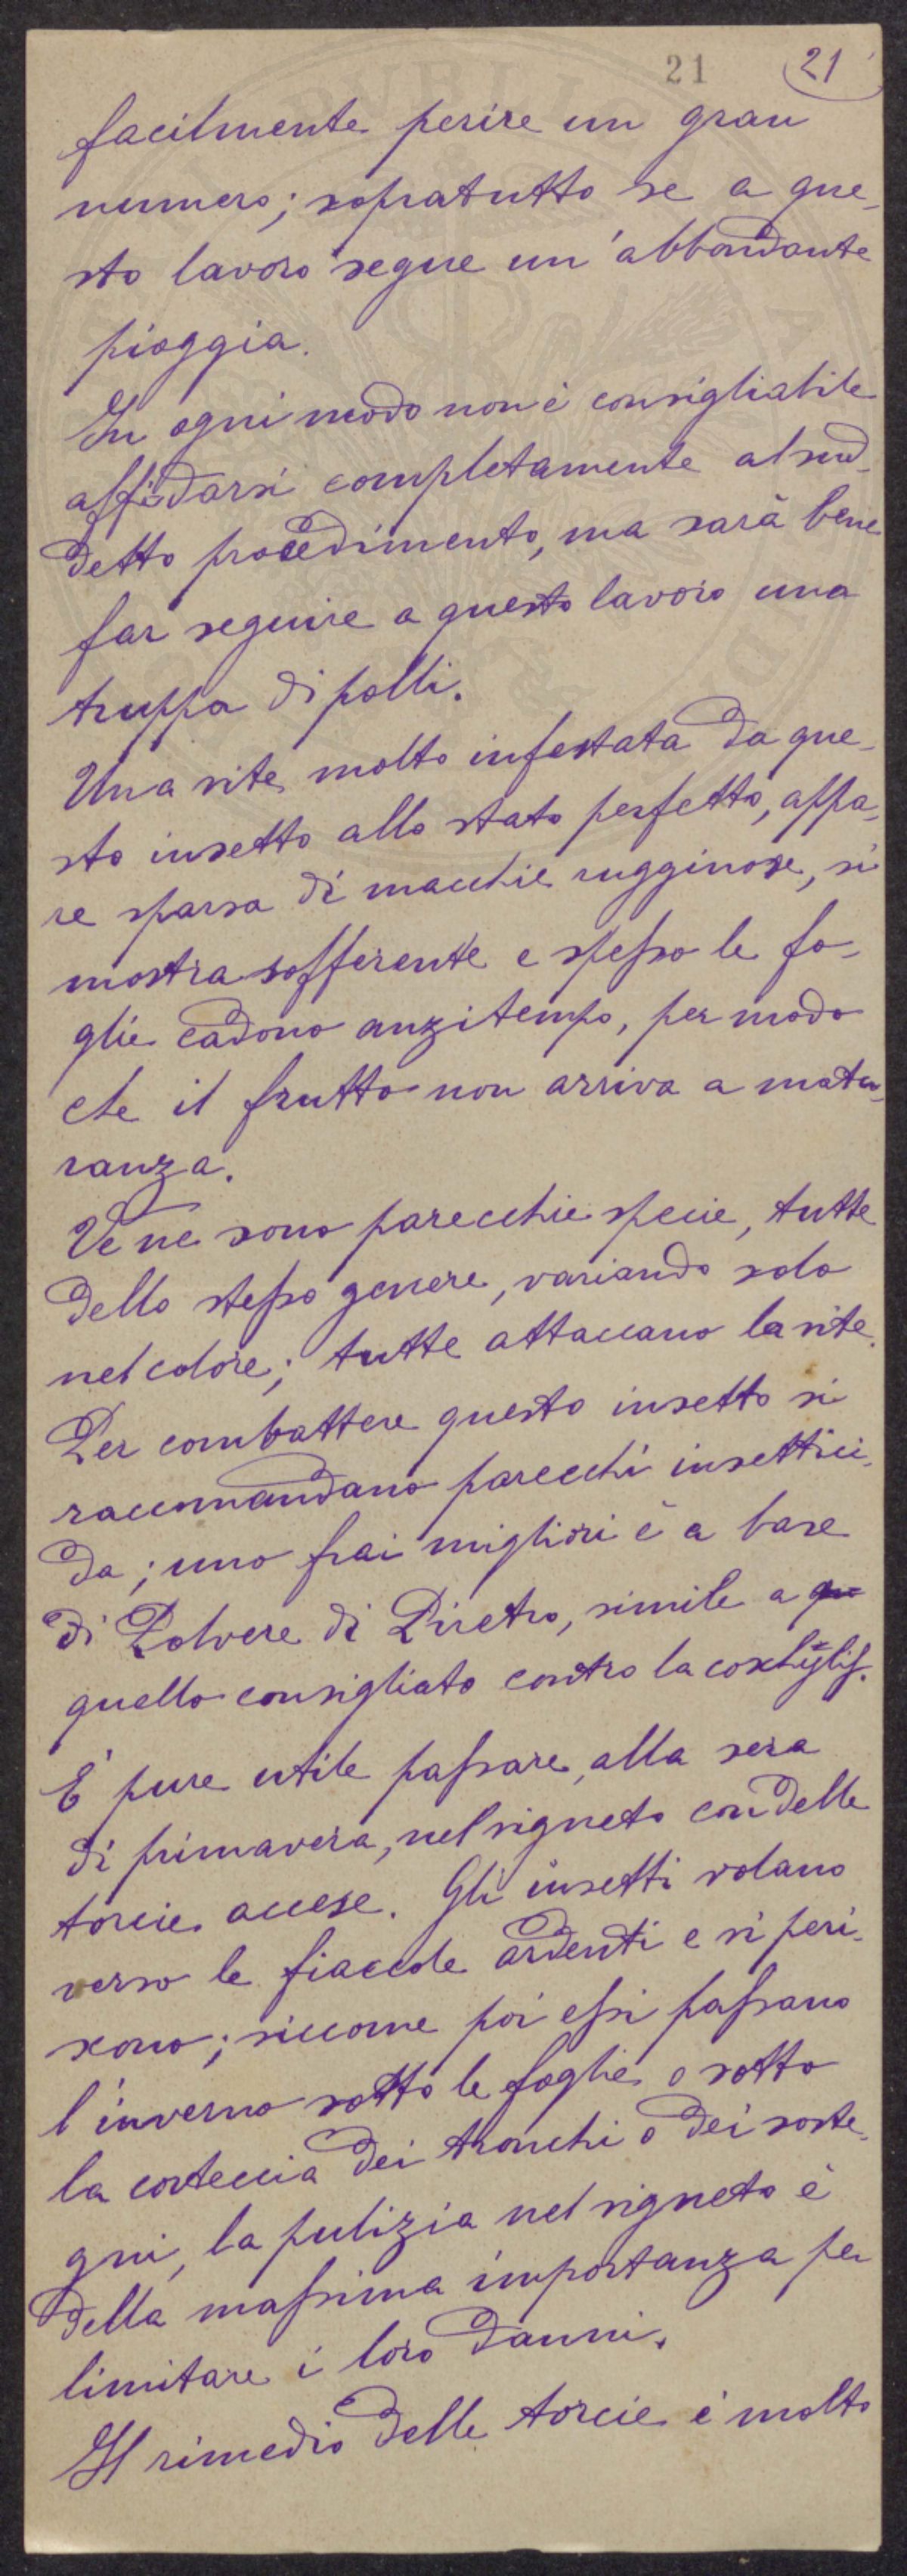 21 21
facilmente perire un gran
numero; sopratutto se a que-
sto lavoro segue un'abbondante
pioggia.
In ogni modo non è consigliabile
affidarsi completamente al sud-
detto procedimento, ma sarà bene
far seguire a questo lavoro una
truppa di polli.
Una vite molto infestata da que-
sto insetto allo stato perfetto, appa-
re sparsa di macchie rugginose, si
mostra sofferente e spesso le fo-
glie cadono anzitempo, per modo
che il frutto non arriva a matu-
ranza.
Ve ne sono parecchie specie, tutte
dello stesso genere, variando solo
nel colore; tutte attaccano la vite.
Per combattere questo insetto si
raccomandano parecchi insettici-
da; uno frai migliori è a base
di Polvere di Piretro, simile a qu
quello consigliato contro la cochylis.
E' pure utile passare, alla sera
di primavera, nel vigneto con delle
torcie accese. Gli insetti volano
verso le fiaccole ardenti e vi peri-
scono; siccome poi essi passano
l'inverno sotto le foglie o sotto
la corteccia dei tronchi o dei soste-
gni, la pulizia nel vigneto è
della massima importanza per
limitare i loro danni.
Il rimedio delle torcie è molto